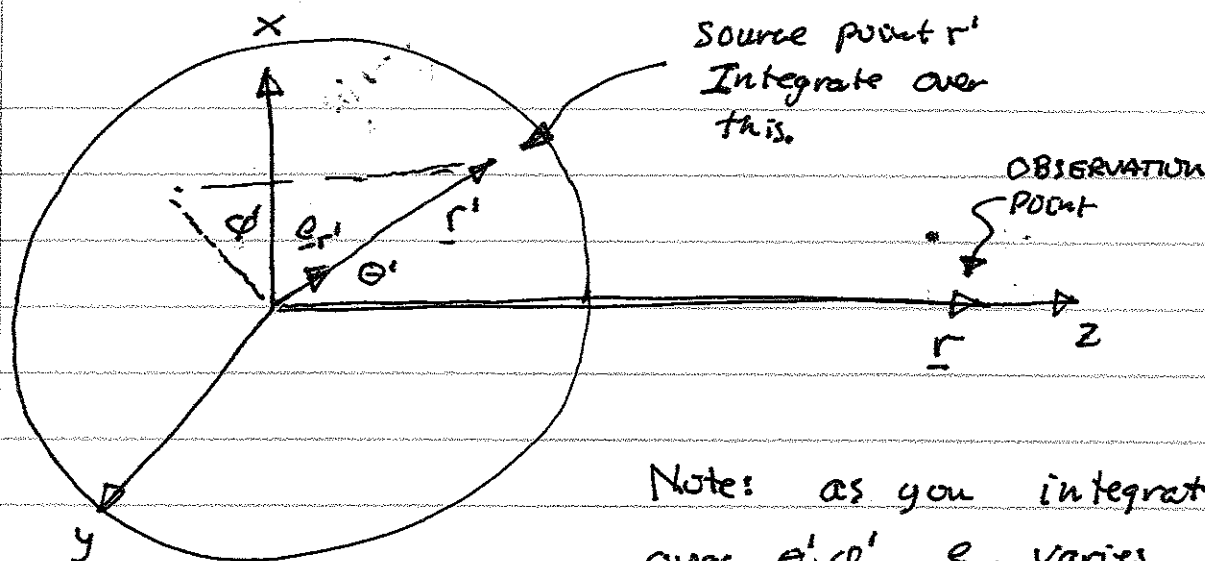 x
Source point r'
Integrate over
this.
OBSERVATION
Point
φ'
e_r'
r'
θ'
r
z
y
Note: as you integrat
over θ', φ' e_r varies